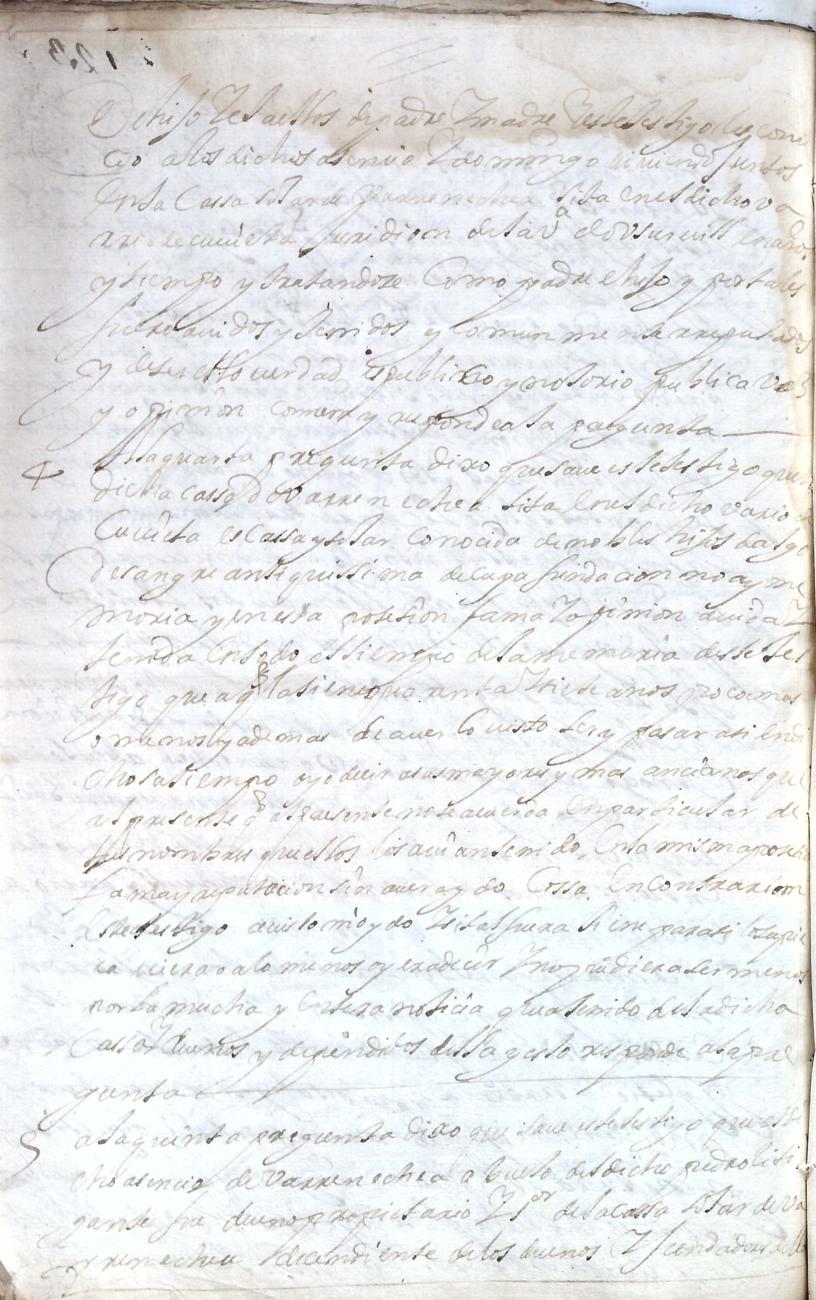 123
E hijo de saellos de padre y madre y este testigo los cono
cio a los dichos asencio y domingo biuiendo juntos
En la Cassa solar de Varrenechea sita en el dicho va
rrio de cuieta juridicion de la va de Vsuruill en año
y tiempo y tratandose Como padre e hijo y por tales
fueron auidos y tenidos y comunmente rreputados
y deserllo uerdad es publico y notorio publica voz
y opinion comun y responde a la pregunta
4 A la quarta pregunta dixo que saue este testigo que la
dicha cassa de Varrenechea sita en el dicho vario de
Cuieta es Cassa y solar Conocida de nobles hijos dalgo
de sangre antiquissima de cuya fundacion no ay me
moria y en esta posesion fama y opinion auida y
tenida en todo el tiempo de la memoria deste tes
tigo que a que la tiene quarenta y siete años poco mas
o menos y ademas de auerlo visto ser y pasar asi en di
cho su tiempo oyo decir a sus mayores y mas ancianos que
al presente q al presente no se acuerda en particular de
sus nombres que ellos los auian tenido En la misma posesi
fama y reputacion sin auer oydo Cossa En Contrario ni
este testigo a visto ni oydo y si tal fuera si en para si lo supie
ra viera o a lo menos oyera decir y no pudiera ser menos
por la mucha y entera noticia que a tenido de la dicha
Cassa y dueños y dependientes della y esto responde a la pre
gunta
5 a la quinta pregunta dixo que saue este testigo que el di
cho asencio de Varrenechea abuelo del dicho pedro liti
gante fue dueño propietario y sor de la cassa solar de Va
rrenechea decendiente de los dueños y fundadores della